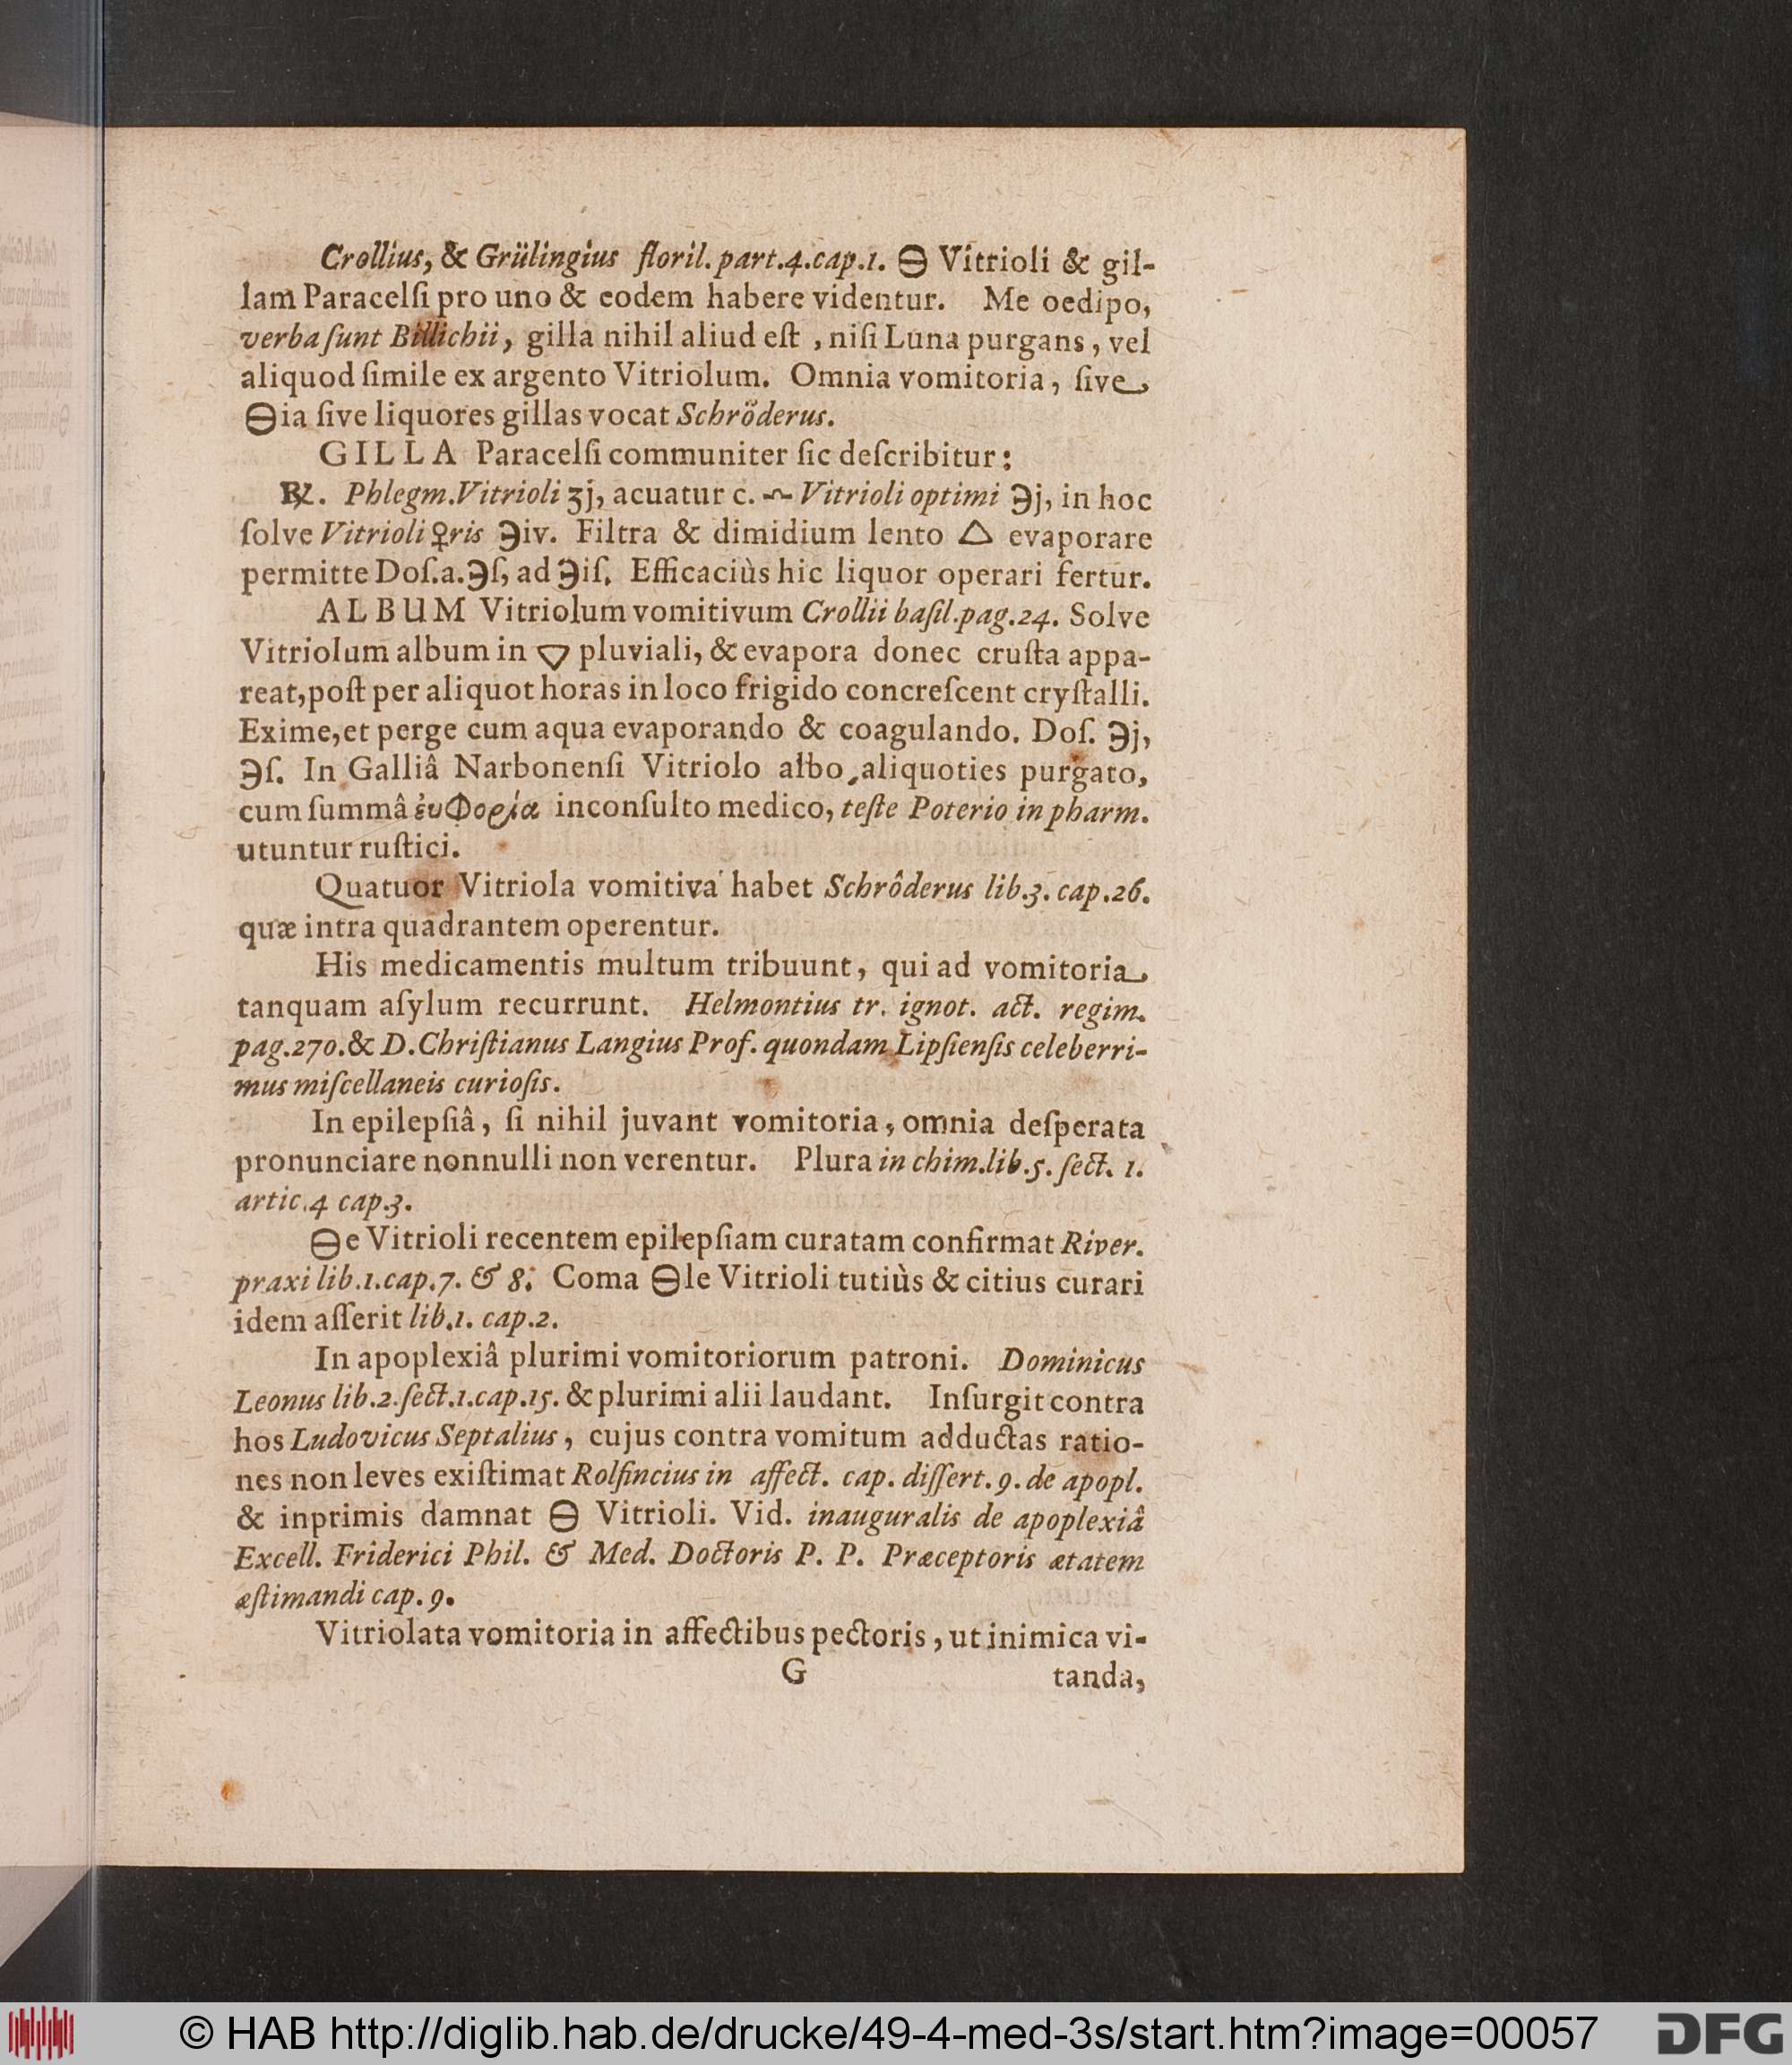 Crollius, & Grülingius floril. part.4.cap.1. 🜔 Vitrioli & gil-
lam Paracelſi pro uno & eodem habere videntur. Me oedipo,
verba ſunt Billichii, gilla nihil aliud eſt , niſi Luna purgans, vel
aliquod ſimile ex argento Vitriolum. Omnia vomitoria, ſive
🜔ia ſive liquores gillas vocat Schröderus.
GILLA Paracelſi communiter ſic deſcribitur:
℞. Phlegm. Vitrioli ʒj, acuatur c. Vitrioli optimi ℈j, in hoc
ſolve Vitrioli ♀ris ℈iv. Filtra & dimidium lento 🜂 evaporare
permitte Doſ.a.℈ſ, ad ℈iſ. Efficaciùs hic liquor operari fertur.
ALBUM Vitriolum vomitivum Crollii baſil.pag.24. Solve
Vitriolum album in 🜄 pluviali, & evapora donec cruſta appa-
reat, poſt per aliquot horas in loco frigido concreſcent cryſtalli.
Exime, et perge cum aqua evaporando & coagulando. Doſ. ℈j,
℈ſ. In Galliâ Narbonenſi Vitriolo albo, aliquoties purgato,
cum ſummâ ἐυφορία inconſulto medico, teſte Poterio in pharm.
utuntur ruſtici.
Quatuor Vitriola vomitiva habet Schrôderus lib.3. cap.26.
quæ intra quadrantem operentur.
His medicamentis multum tribuunt, qui ad vomitoria
tanquam aſylum recurrunt. Helmontius tr. ignot. act. regim.
pag.270. & D. Chriſtianus Langius Prof. quondam Lipſienſis celeberri-
mus miſcellaneis curioſis.
In epilepſiâ, ſi nihil juvant vomitoria, omnia deſperata
pronunciare nonnulli non verentur. Plura in chim.lib.5. ſect. 1.
artic.4 cap.3.
🜔e Vitrioli recentem epilepſiam curatam confirmat River.
praxi lib.1.cap.7. & 8. Coma 🜔le Vitrioli tutiùs & citius curari
idem aſſerit lib.1. cap.2.
In apoplexiâ plurimi vomitoriorum patroni. Dominicus
Leonus lib.2.ſect.1.cap.15. & plurimi alii laudant. Inſurgit contra
hos Ludovicus Septalius, cujus contra vomitum adductas ratio-
nes non leves exiſtimat Rolfincius in affect. cap. diſſert.9. de apopl.
& inprimis damnat 🜔 Vitrioli. Vid. inauguralis de apoplexiâ
Excell. Friderici Phil. & Med. Doctoris P. P. Præceptoris ætatem
æſtimandi cap. 9.
Vitriolata vomitoria in affectibus pectoris, ut inimica vi-
G tanda,
© HAB http://diglib.hab.de/drucke/49-4-med-3s/start.htm?image=00057
DFG